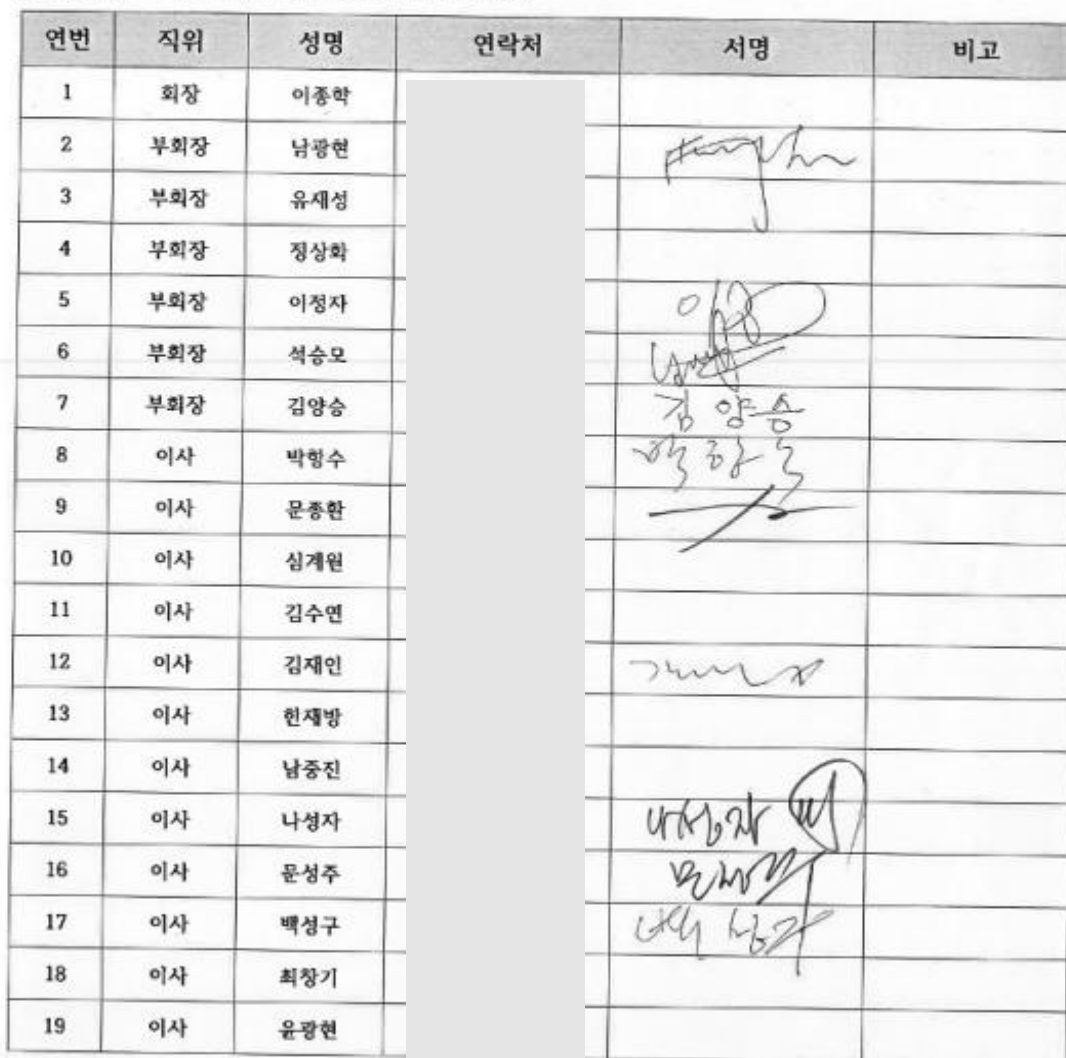 연번 직위 성명 연락처 서명 비고
1 회장 이종학
2 부회장 남광현
3 부회장 유재성
4 부회장 정상화
5 부회장 이정자
6 부회장 석승모
7 부회장 김양승 김양승
8 이사 박항수 박항수
9 이사 문종환
10 이사 심계원
11 이사 김수연
12 이사 김재인
13 이사 헌재방
14 이사 남중진
15 이사 나성자 나성자
16 이사 문성주 문성주
17 이사 백성구 백성구
18 이사 최창기
19 이사 윤광현